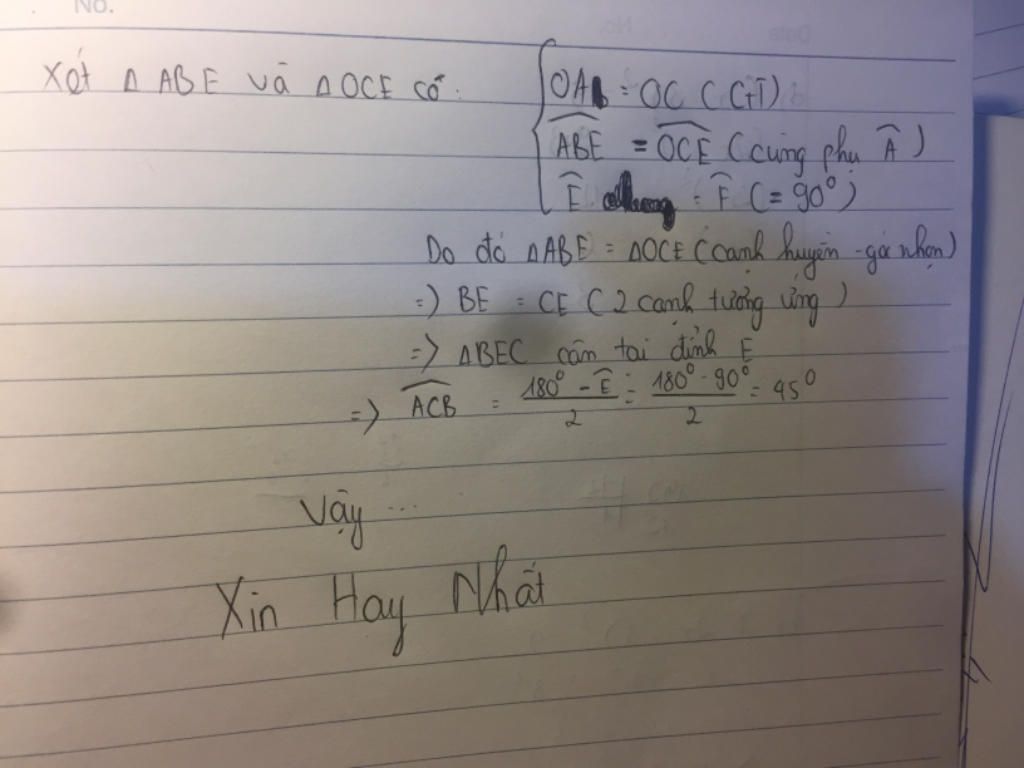 No.
Xét Δ ABE và Δ OCE có:
OAB = OC (GT)
ABE = OCE (cùng phụ Â)
Ê = Ê (= 90°)
Do đó ΔABE = ΔOCE (cạnh huyền - góc nhọn)
=) BE = CE (2 cạnh tưởng ứng)
=> ΔBEC cân tại đỉnh E
=> ACB = (180° - Ê)/2 = (180° - 90°)/2 = 45°
Vậy ...
Xin Hay Nhất